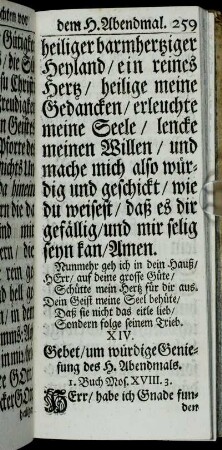 dem H. Abendmal. 259
heiliger barmhertziger
Heyland/ ein reines
Hertz/ heilige meine
Gedancken/ erleuchte
meine Seele/ lencke
meinen Willen/ und
mache mich also wür-
dig und geschickt/ wie
du weisest/ daß es dir
gefällig/ und mir selig
seyn kan/ Amen.
Nunmehr geh ich in dein Hauß/
HErr/ auf deine grosse Güte/
Schütte mein Hertz für dir aus.
Dein Geist meine Seel behüte/
Daß sie nicht das eitle lieb/
Sondern folge seinem Trieb.
XIV.
Gebet/ um würdige Genies-
sung des H. Abendmals.
1. Buch Mos. XVIII. 3.
HErr/ habe ich Gnade fun-
den